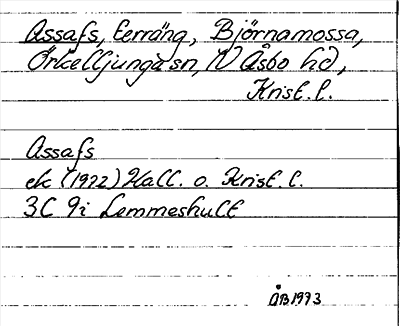 Assafs, terräng, Björnamossa,
Örkelljunga sn, N Åsbo hd,
Krist. l.
Assafs
ek (1972) Hall. o. Krist. l.
3C 9i Lemmeshult
ÅB 1973